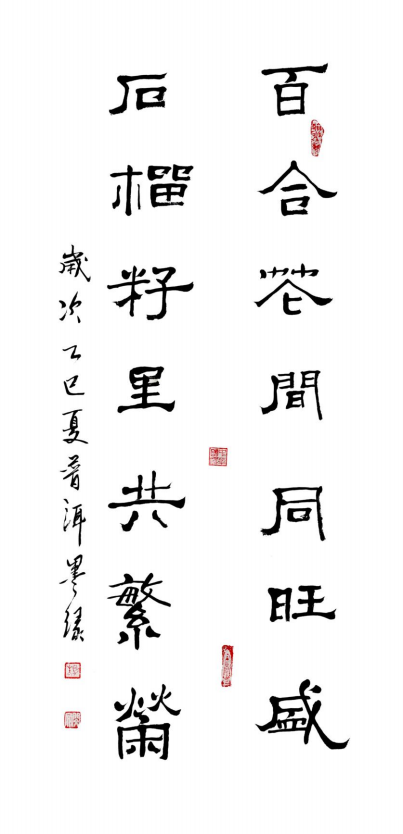 百合花間同旺盛
石榴籽里共繁榮
歲次乙巳夏普洱墨緣